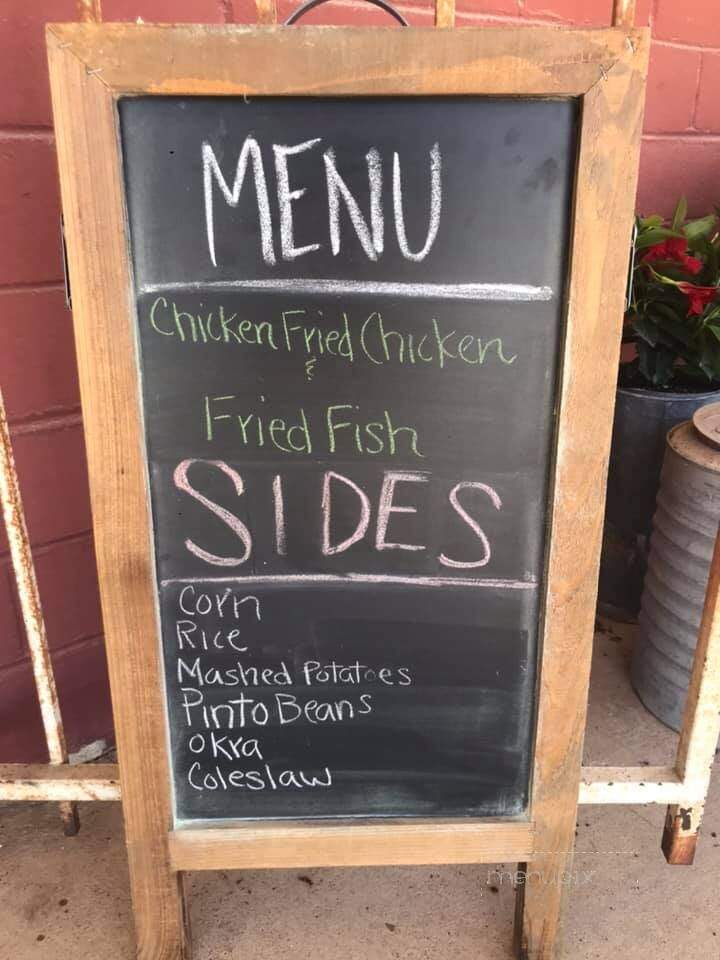 MENU
Chicken Fried Chicken
&
Fried Fish
SIDES
Corn
Rice
Mashed Potatoes
Pinto Beans
Okra
Coleslaw
menupix